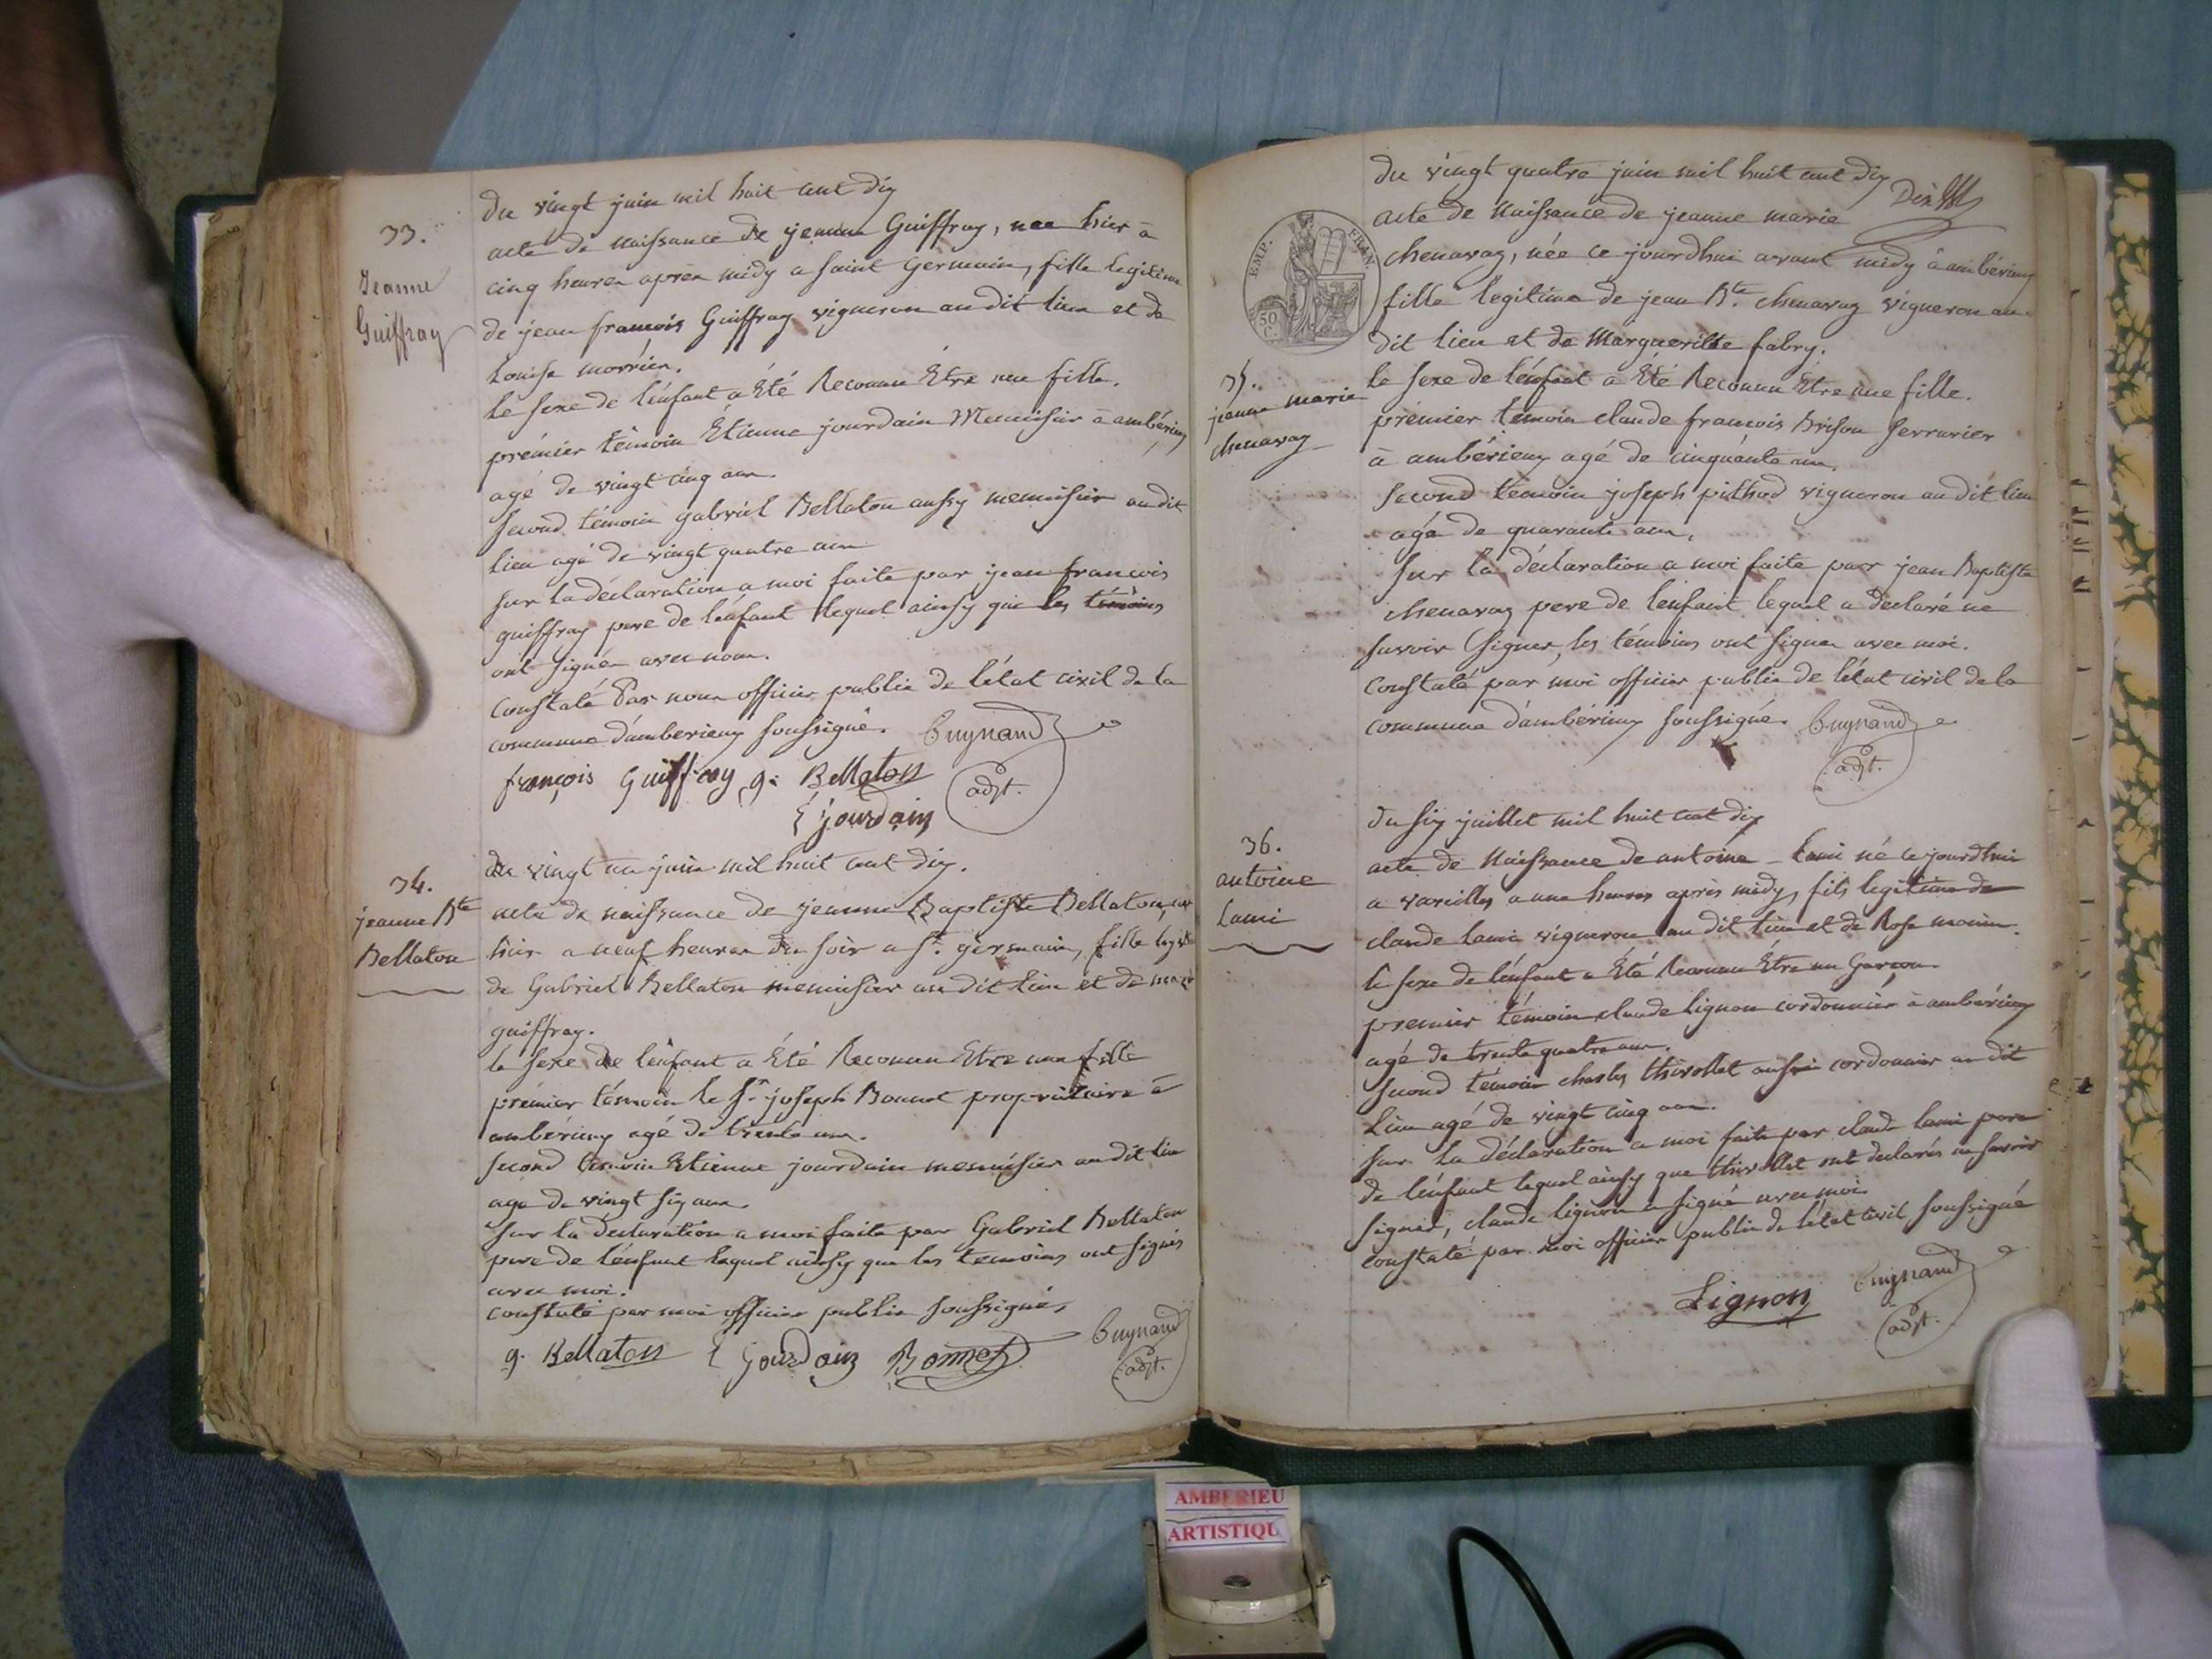 33.
Jeanne
Guiffray
du vingt juin mil huit cent dix
acte de naissance de jeanne Guiffray, nee hier à
cinq heures après midy a saint germain, fille legitime
de jean françois Guiffray vigneron audit lieu et de
Louise
le sexe de l'enfant a Été Reconnu Être une fille.
prémier témoin Étienne jourdain Menuisier à ambérieux
agé de vingt cinq ans
second témoin gabriel Bellaton aussy menuisier audit
lieu agé de vingt quatre ans
sur la déclaration a moi faite par jean françois
guiffray pere de l'enfant lequel ainsy que les témoins
ont signés avec nous.
Constaté Par nous officier public de l'état civil de la
commune d'amberieux soussigné. Cuynand
adjt.
françois Guiffray g. Bellaton
E jourdain
34.
jeanne Bte
Bellaton
du vingt un juin mil huit cent dix.
acte de naissance de jeanne Baptiste Bellaton, née
hier a neuf heures du soir a St. germain, fille legit
de Gabriel Bellaton menuisier audit lieu et de
guiffray.
le sexe de l'enfant a Été Reconnu Etre une fille
prémier témoin le Sr joseph Bonnet propriétaire à
ambérieux agé de trente ans.
second temoin Etienne jourdain menuisier audit lieu
agé de vingt six ans
sur la déclaration a moi faite par Gabriel Bellaton
pere de l'enfant lequel ainsy que les temoins ont signés
avec moi.
constaté par moi officier public soussigné,
g. Bellaton E Jourdain Bonnet Cuynand
adjt.
du vingt quatre juin mil huit cent dix
EMP. FRAN.
50 C.
35.
jeanne marie
chenavaz
acte de naissance de jeanne marie
chenavaz, née ce jourdhui avant midy à ambérieux
fille legitime de jean Bte. chenavaz vigneron au
dit lieu et de Margueritte fabry.
le sexe de l'enfant a Été Reconnu Être une fille.
prémier témoin claude françois Brison serrurier
à ambérieux agé de cinquante ans,
second témoin joseph pithod vigneron audit lieu
agé de quarante ans,
sur la déclaration a moi faite par jean Baptiste
chenavaz pere de l'enfant lequel a déclaré ne
savoir signer, les témoins ont signés avec moi.
Constaté par moi officier public de l'état civil de la
commune d'ambérieux soussigné. Cuynand
adjt.
36.
antoine
Lami
du six juillet mil huit cent dix
acte de naissance de antoine Lami né ce jourdhui
a vareilles a une heures après midy, fils legitime de
claude lami vigneron au dit lieu et de Rose
le sexe de l'enfant a Été Reconnu Être un Garçon.
premier témoin claude lignon cordonnier à ambérieux
agé de trente quatre ans.
second témoin charles thivollet aussi cordonnier au dit
Lieu agé de vingt cinq ans.
sur la déclaration a moi faite par claude lami pere
de l'enfant lequel ainsy que thivollet ont declarés ne savoir
signer, claude lignon a signé avec moi
constaté par moi officier public de l'état civil soussigné
Lignon Cuynand
adjt.
AMBERIEU
ARTISTIQU